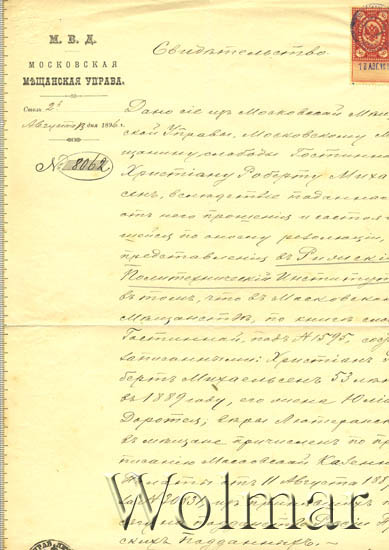 М. В. Д.
МОСКОВСКАЯ
МѢЩАНСКАЯ УПРАВА.
Столъ 2й
Августа 13 дня 1896 г.
№ 8062
Свидѣтельство.
Дано сіе изъ Московской Мѣщан
ской Управы, Московскому М
щанину, слободы Гостинно
Христіану Роберту Миха
сенъ, вслѣдствіе поданно
отъ него прошенія и состоя
шейся по оному резолюціи
представленія въ Рижскій
Политехническій Институт
въ томъ, что въ Московско
Мѣщанствѣ, по книгѣ сло
Гостинной, подъ № 1595, со
записанными: Христіанъ
бертъ Михаельсенъ 53 лѣ
въ 1889 году, его жена Юлі
Доротея; вѣры Лютеранск
въ мѣщане причисленъ по пр
писанію Московской Казенн
Палаты отъ 11 Августа 188
за №
скихъ подданныхъ.
Wolmar